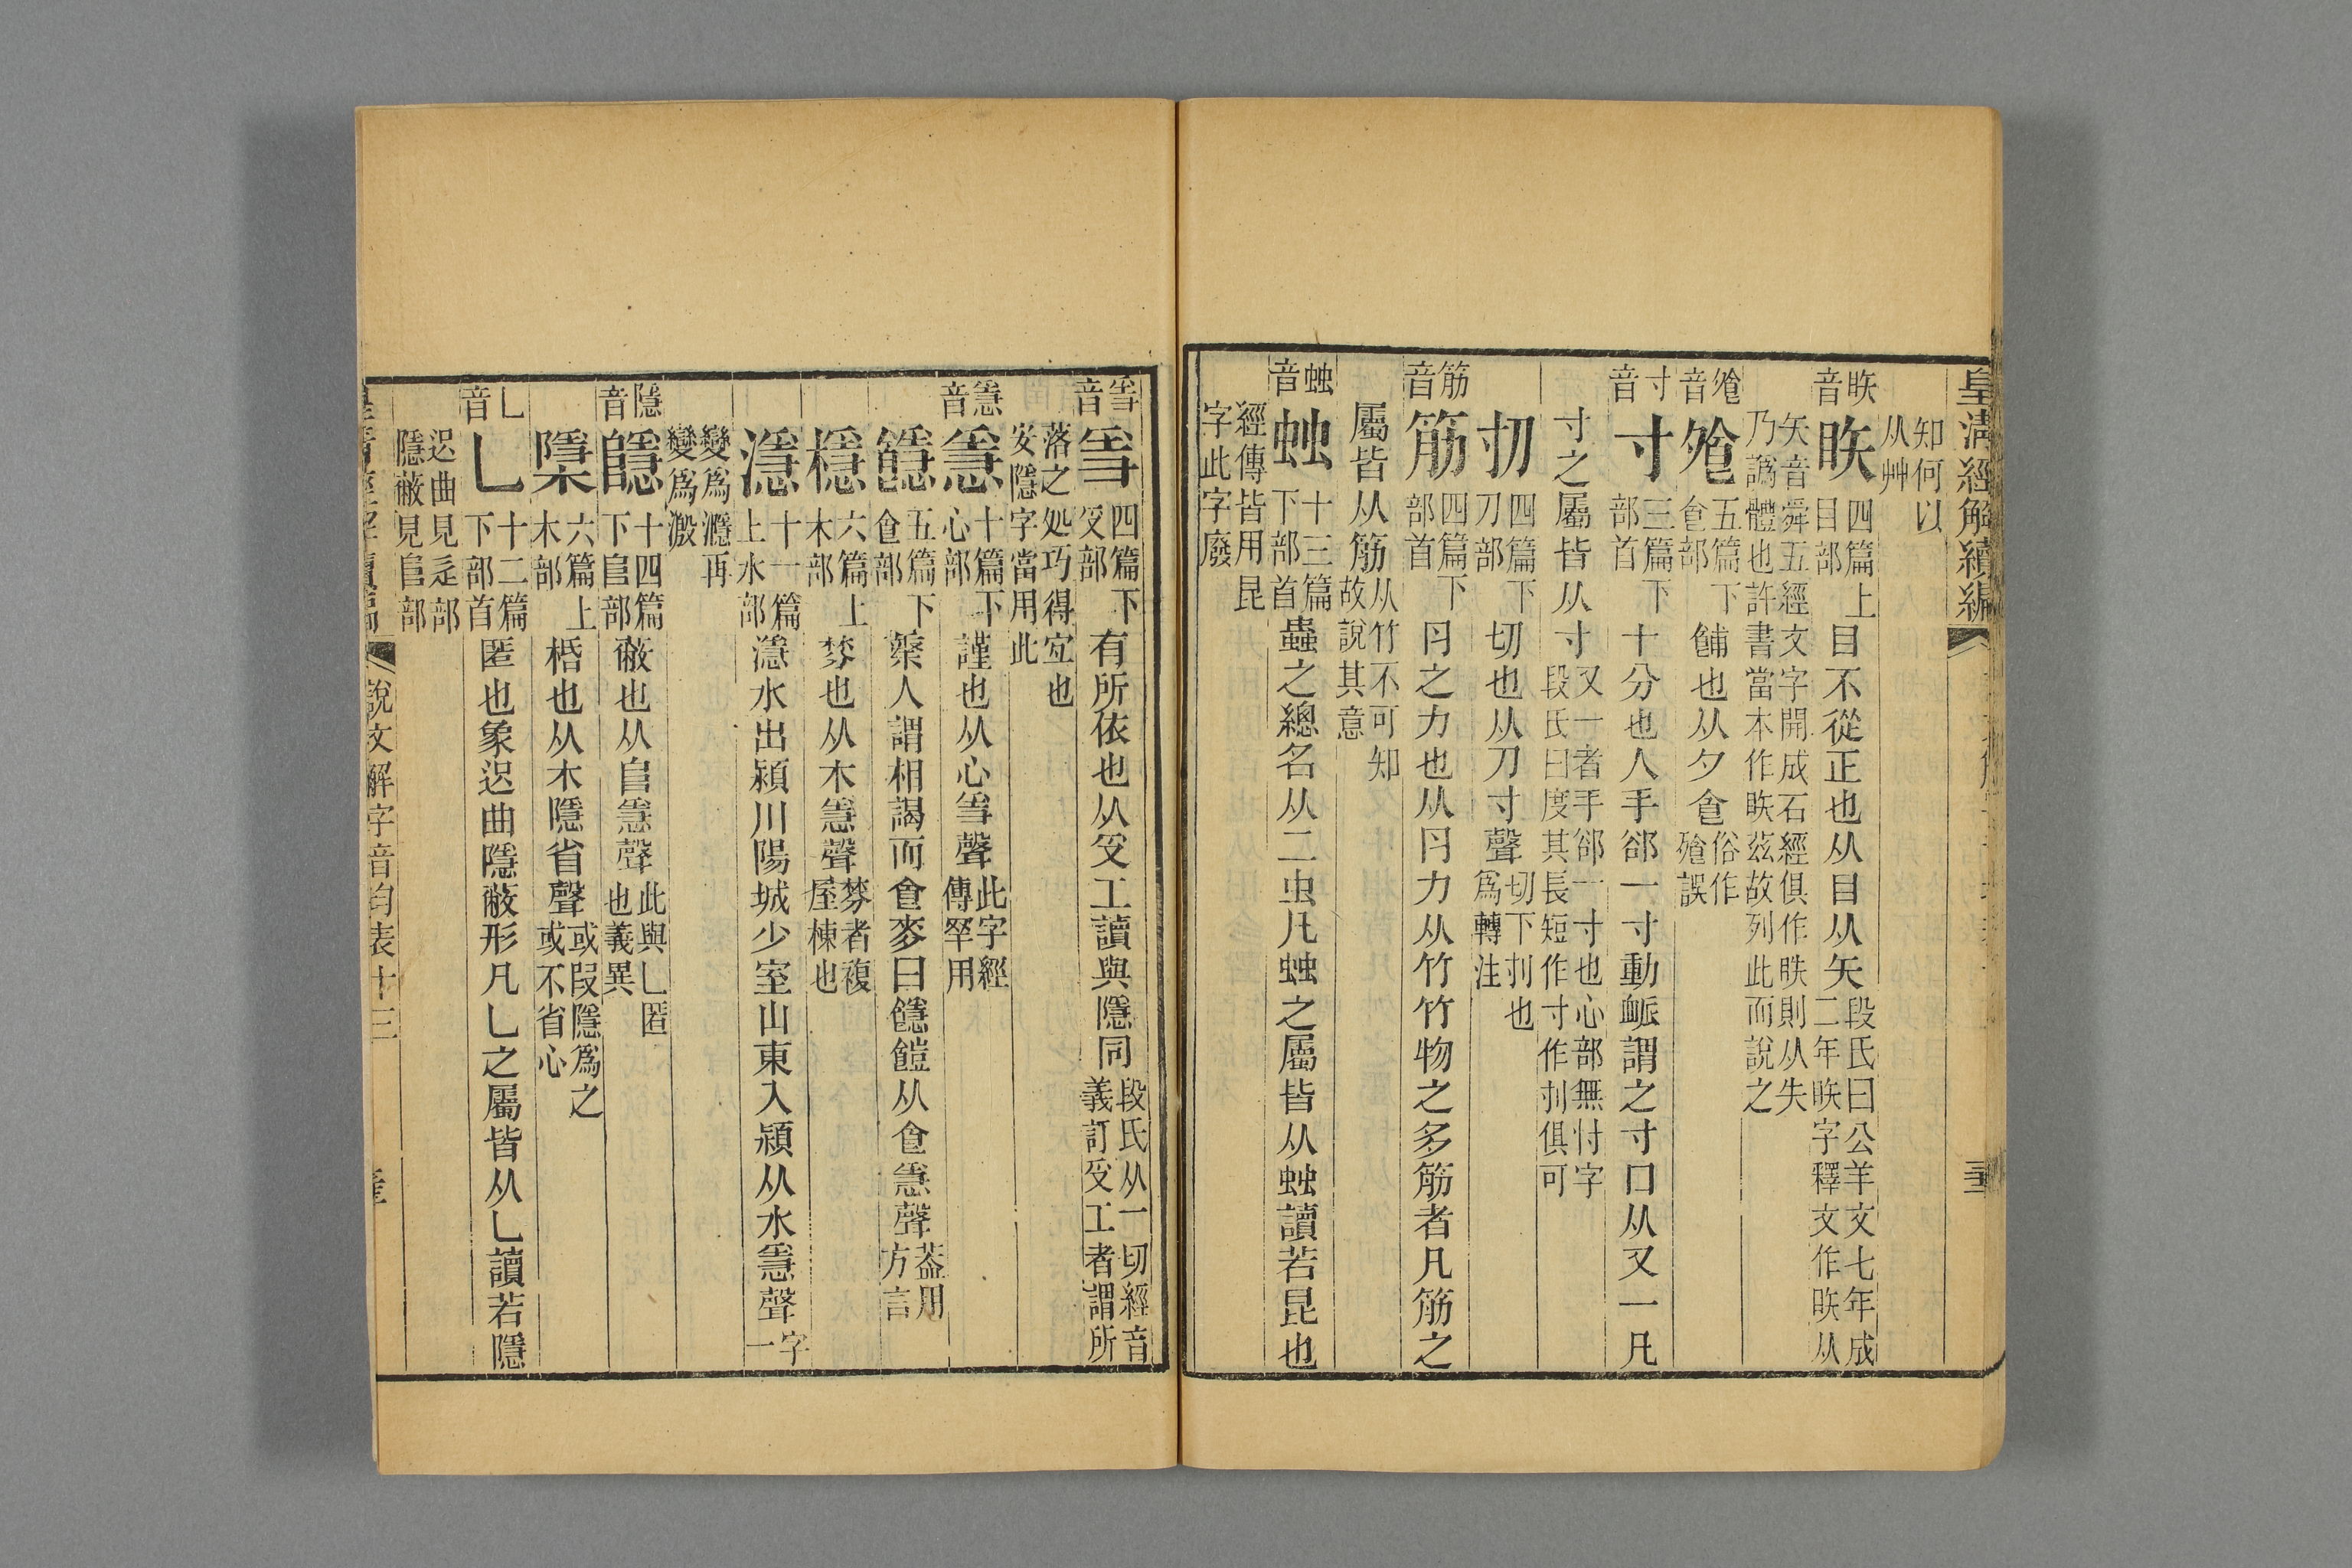 皇淸經解續編
知何以
从艸
眣音 眣 四篇上目部 目不從正也从目从矢 段氏曰公羊文七年成二年眣字釋文作眣从
矢音舜五經文字開成石經俱作眣則从失
乃譌體也許書當本作眣茲故列此而說之
飧音 飧 五篇下食部 餔也从夕食 俗作飱誤
寸音 寸 三篇下部首 十分也人手郤一寸動衇謂之寸口从又一凡
寸之屬皆从寸 又一者手郤一寸也心部無忖字段氏曰度其長短作寸作刌俱可
刌 四篇下刀部 切也从刀寸聲 切下刌也爲轉注
筋音 筋 四篇下部首 肉之力也从肉力从竹竹物之多筋者凡筋之
屬皆从筋 从竹不可知故說其意
䖵音 䖵 十三篇下部首 蟲之總名从二虫凡䖵之屬皆从䖵讀若昆也
經傳皆用昆
字此字廢
㥯音 𤔌 四篇下𠬪部 有所依也从𠬪工讀與隱同 段氏从一切經音義訂𠬪工者謂所
落之処巧得宜也
安隱字當用此
㥯音 㥯 十篇下心部 謹也从心𤔌聲 此字經傳罕用
䭡 五篇下食部 㯤人謂相謁而食麥曰䭡䭓从食㥯聲 葢用方言
檼 六篇上木部 棼也从木㥯聲 棼者複屋棟也
濦 十一篇上水部 濦水出潁川陽城少室山東入潁从水㥯聲 字一
變爲㶏再
變爲溵
隱音 隱 十四篇下𨸏部 蔽也从𨸏㥯聲 此與乚匿也義異
㯯 六篇上木部 桰也从木隱省聲 或叚隱爲之或不省心
乚音 乚 十二篇下部首 匿也象𨒈曲隱蔽形凡乚之屬皆从乚讀若隱
𨒈曲見辵部
隱蔽見𨸏部
說文解字音均表十三